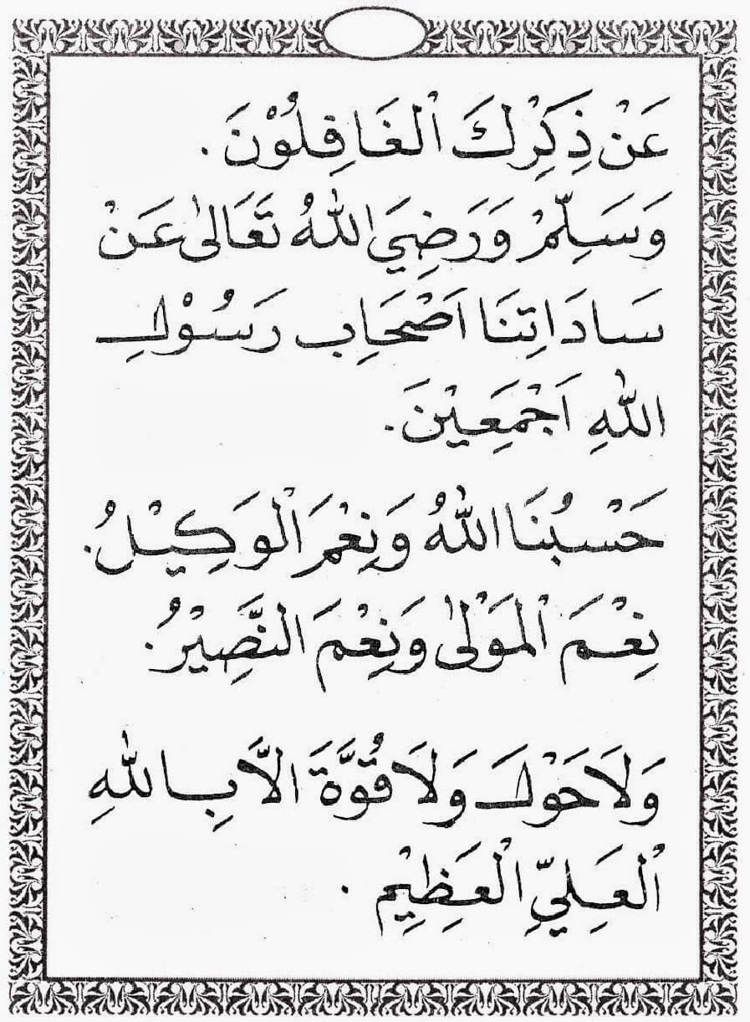 عَنْ ذِكْرِكَ الْغَافِلُوْنَ .
وَسَلِّمْ وَرَضِيَ اللهُ تَعَالىٰ عَنْ
سَادَاتِنَا اَصْحَابِ رَسُوْلِ
اللهِ اَجْمَعِيْنَ.
حَسْبُنَا اللهُ وَنِعْمَ الْوَكِيْلُ.
نِعْمَ الْمَوْلىٰ وَنِعْمَ النَّصِيْرُ.
وَلَا حَوْلَ وَلَا قُوَّةَ اِلَّا بِاللهِ
الْعَلِيِّ الْعَظِيْمِ .